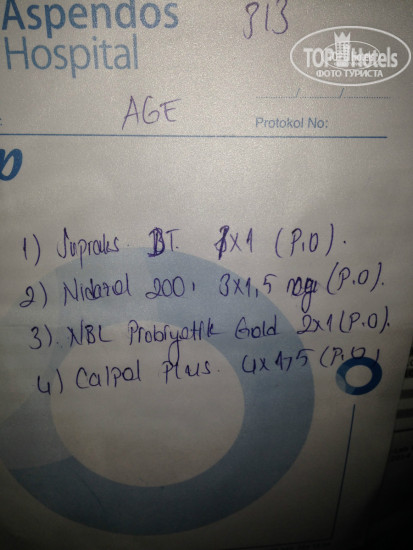 Aspendos
Hospital
313
TOP Hotels
ФОТО ТУРИСТА
AGE
Protokol No:
1) Supraks. BT. 1x1 (P.O).
2) Nidazol 200, 3x1,5 (P.O).
3) NBL Probiyotik Gold 2x1 (P.O).
4) Calpol Plus. 4x1,5 (P.O)